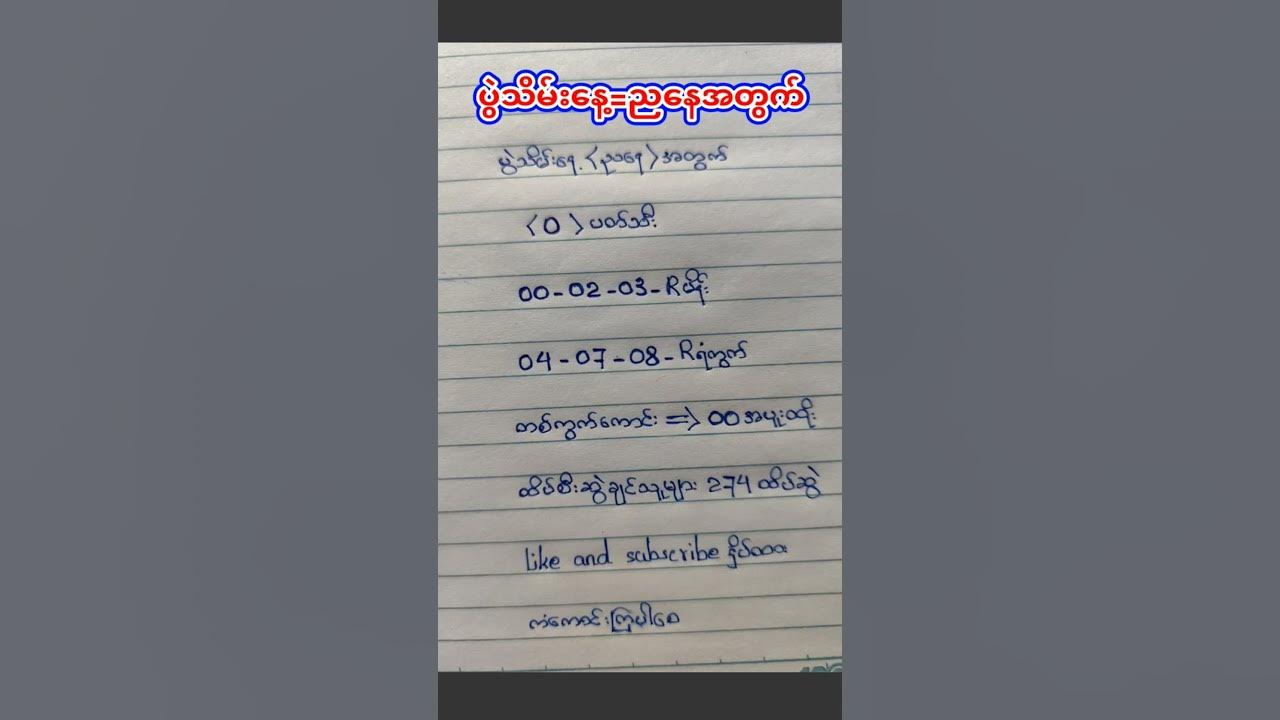 ပွဲသိမ်းနေ့=ညနေအတွက်
ပွဲသိမ်းနေ့ <ညနေ> အတွက်
<0> ပတ်သီး
00-02-03-Rထိုး
04-07-08-Rရံကွက်
တစ်ကွက်ကောင်း => 00 အပူးထိုး
ထိပ်စီးဆွဲချင်သူများ 274 ထိပ်ဆွဲ
like and subscribe နှိပ်ထား
ကံကောင်းကြပါစေ